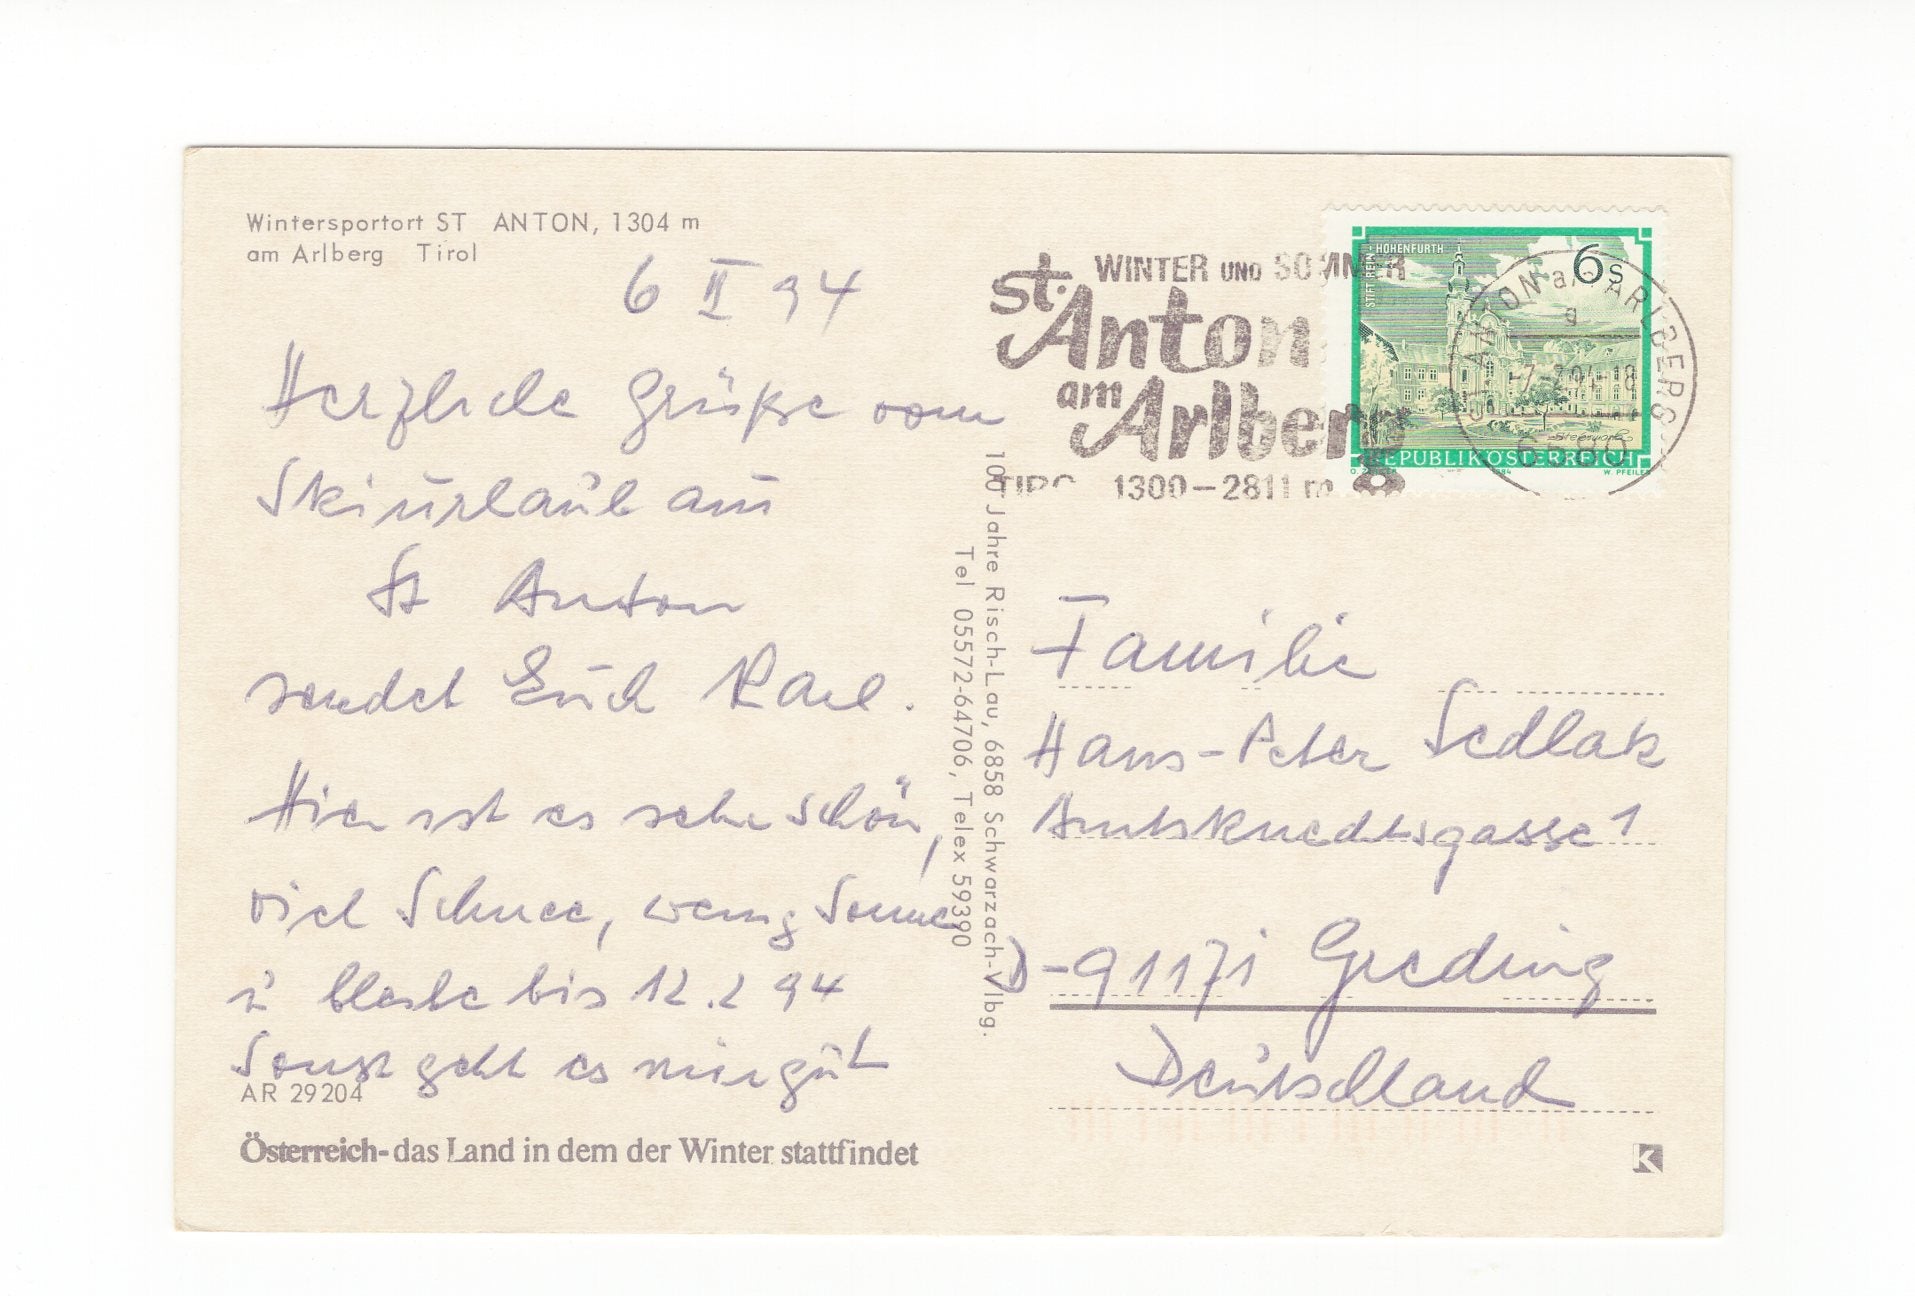 Wintersportort ST ANTON, 1304 m
am Arlberg Tirol
6 II 94
Herzliche Grüße vom
Skiurlaub aus
St Anton
sendet Euch Karl.
Hier ist es sehr schön,
viel Schnee, wenig Sonne
u bleibe bis 12.2 94
Sonst geht es mir gut
AR 29204
Österreich- das Land in dem der Winter stattfindet
100 Jahre Risch-Lau, 6858 Schwarzach-Vlbg.
Tel 05572-64706, Telex 59390
WINTER UND SOMMER
St. Anton
am Arlberg
1300-2811 m
STIFT REIN-HOHENFURTH
6 S
REPUBLIK ÖSTERREICH
W. PFEILER
ST. ANTON a. ARLBERG
-7.-2.94-18
6580
Familie
Hans-Peter Sedlak
Amtsknechtsgasse 1
D-91171 Greding
Deutschland
K